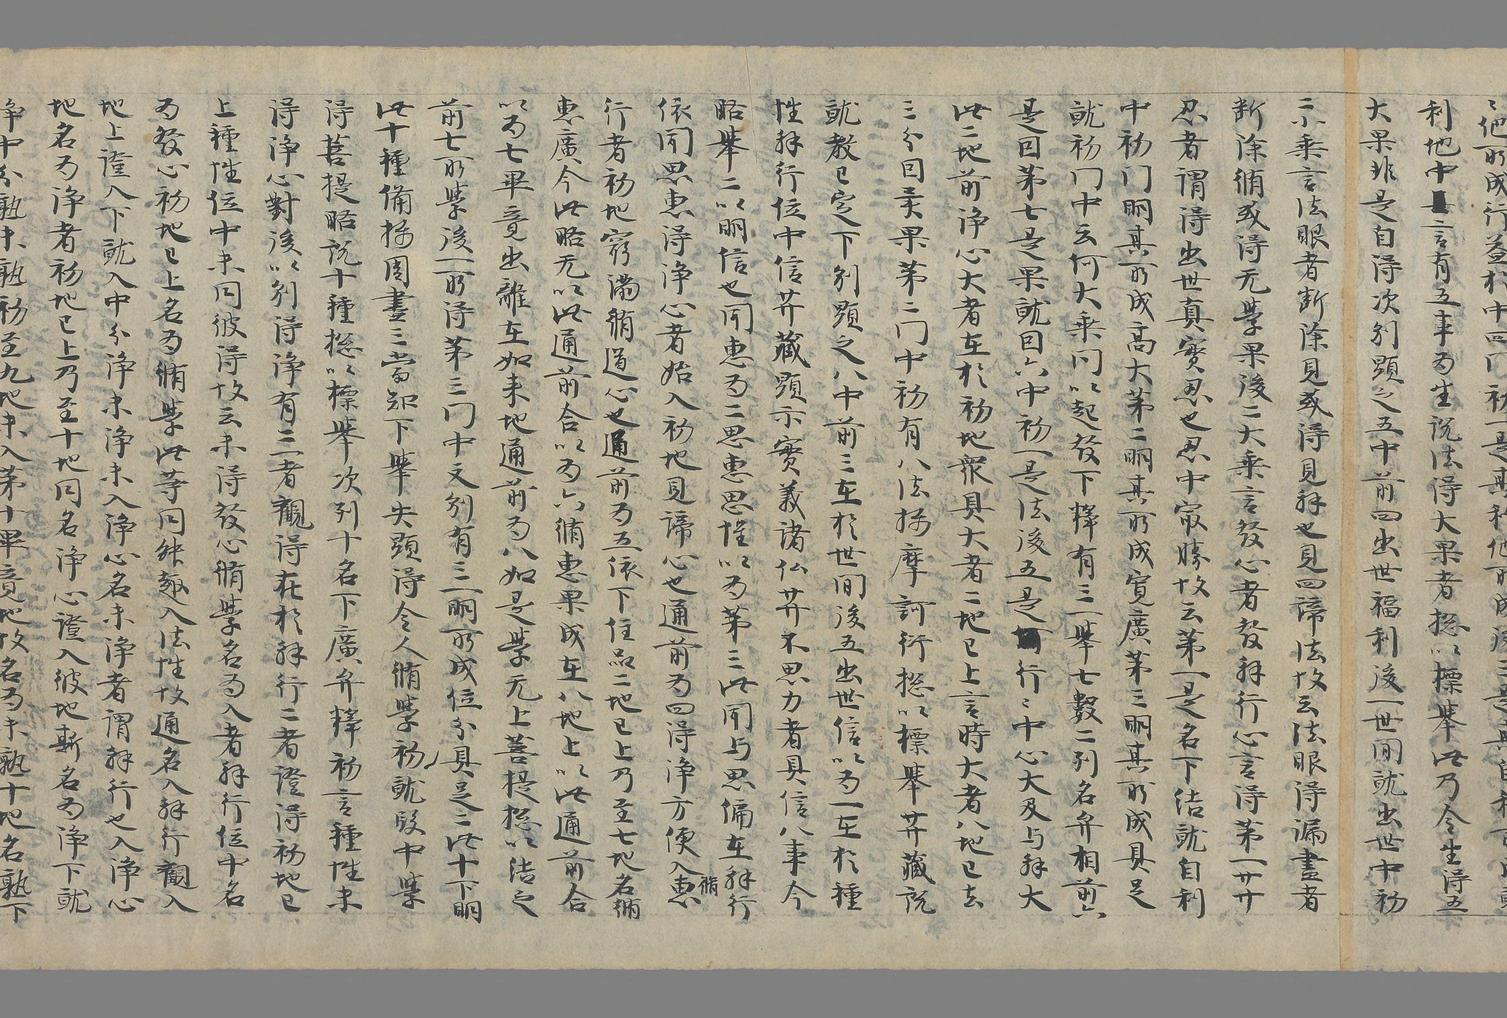 利地中言有五事為生說法得大果者揔以標舉此乃令生得五
大果非是自得次別顯之五中前四出世福利後一世間就出世中初
二小乘言法眼者斷除見或得見解也見四諦法故云法眼得漏盡者
斷除脩或得无學果後二大乘言發心者發解行心言得第一忍
忍者謂得出世真實忍也忍中最勝故云第一是名下結就自利
中初門明其所成高大第二明其所成寬廣第三明其所成具足
就初門中云何大乘問以起發下釋有三一舉七數二列名弁相前六
是因第七是果就因六中初一是法後五是行〻中心大及与解大
此二地前淨心大者在於初地衆具大者二地已上言時大者八地已去
三分因果果第二門中初有八法攝摩訶衍揔以標舉菩薩藏說
就教已定下別顯之八中前三在於世間後五出世信以為一在於種
性解行位中信菩薩藏顯示實義諸仏菩薩不思力者具信八事今
略舉二以明信也聞惠為二思惠思惟以為第三此聞与思偏在解行
依聞思惠得淨心者始入初地見諦心也通前為四得淨方便入脩惠
行者初地窮滿脩道心也通前為五依下住品二地已上乃至七地名脩
惠廣今此略无以此通前合以為六脩惠果成在八地上以此通前合
以為七畢竟出離在如来地通前為八如是學无上菩提揔以結之
前七所學後一所得第三門中文別有三一明所成位分具足二此十下明
此十種備攝周盡三當知下舉失顯得令人脩學初就段中舉
得菩提略說十種揔以標舉次列十名下廣弁釋初言種性未
得淨心對後以別得淨有二一者觀得在於解行二者證得初地已
上種性位中未同彼得故云未得發心脩學名為入者解行位中名
為發心初地已上名為脩學此等同能趣入法性故通名入解行觀入
地上證入下就入中分淨未淨未入淨心名未淨者謂解行也入淨心
地名為淨者初地已上乃至十地同名淨心證入彼地斯名為淨下就
淨中分熟未熟初至九地未入第十畢竟地故名為未熟十地名熟下